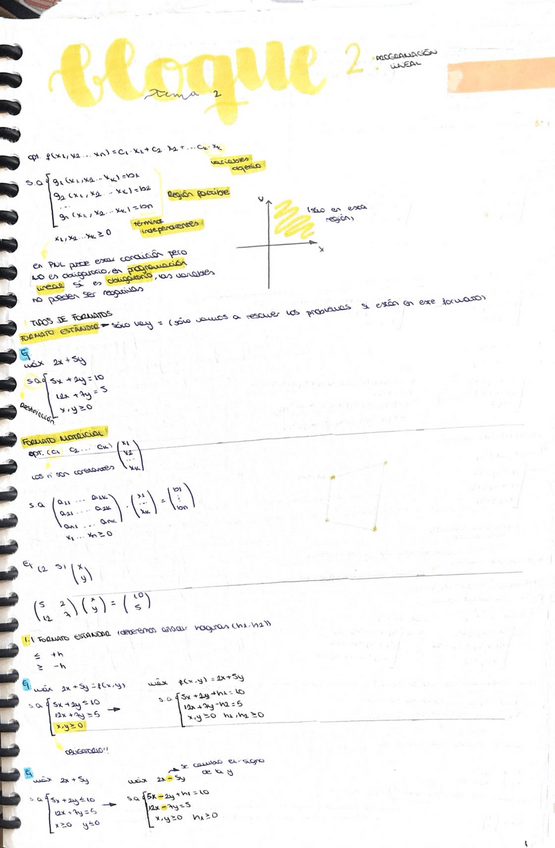 bloque 2: PROGRAMACIÓN LINEAL
Tema 2
opt. f(x1, x2 ... xn) = c1 · x1 + c2 · x2 + ... ck · xk
variables
s.a g1 (x1, x2 ... xk) = b1
g2 (x1, x2 ... xk) = b2
...
gn (x1, x2 ... xk) = bn
x1, x2 ... xk ≥ 0
Región factible
términos independientes
y
x
(sólo en esta región)
en PNL puede estar condición pero
NO es obligatorio, en programación
lineal sí es obligatorio, las variables
no pueden ser negativas
TIPOS DE FORMATOS
FORMATO ESTÁNDAR → sólo hay = (sólo vamos a resolver los problemas si están en este formato)
Ej
máx 2x + 5y
s.a 5x + 2y = 10
12x + 7y = 5
x, y ≥ 0
Restricción
FORMATO MATRICIAL:
opt. (c1 c2 ... ck) (x1
x2
...
xk)
s.a (a11 ... a1k
a21 ... a2k
an1 ... ank) · (x1
...
xk) = (b1
⋮
bn)
x1 ... xn ≥ 0
Ej (2 5) (x
y)
(5 2
12 7) (x
y) = (10
5)
1.1 FORMATO ESTÁNDAR (debemos añadir holguras (h1, h2))
≤ +h
≥ -h
Ej máx 2x + 5y = f(x,y)
s.a 5x + 2y ≤ 10
12x + 7y ≥ 5
x, y ≥ 0
→
máx f(x,y) = 2x + 5y
s.a 5x + 2y + h1 = 10
12x + 7y - h2 = 5
x, y ≥ 0 h1, h2 ≥ 0
OBLIGATORIO!!
Ej
máx 2x + 5y
s.a 5x + 2y ≤ 10
12x + 7y = 5
x ≥ 0 y ≤ 0
→
se cambia el signo de la y
máx 2x - 5y
s.a 5x - 2y + h1 = 10
12x - 7y = 5
x, y ≥ 0 h1 ≥ 0
1